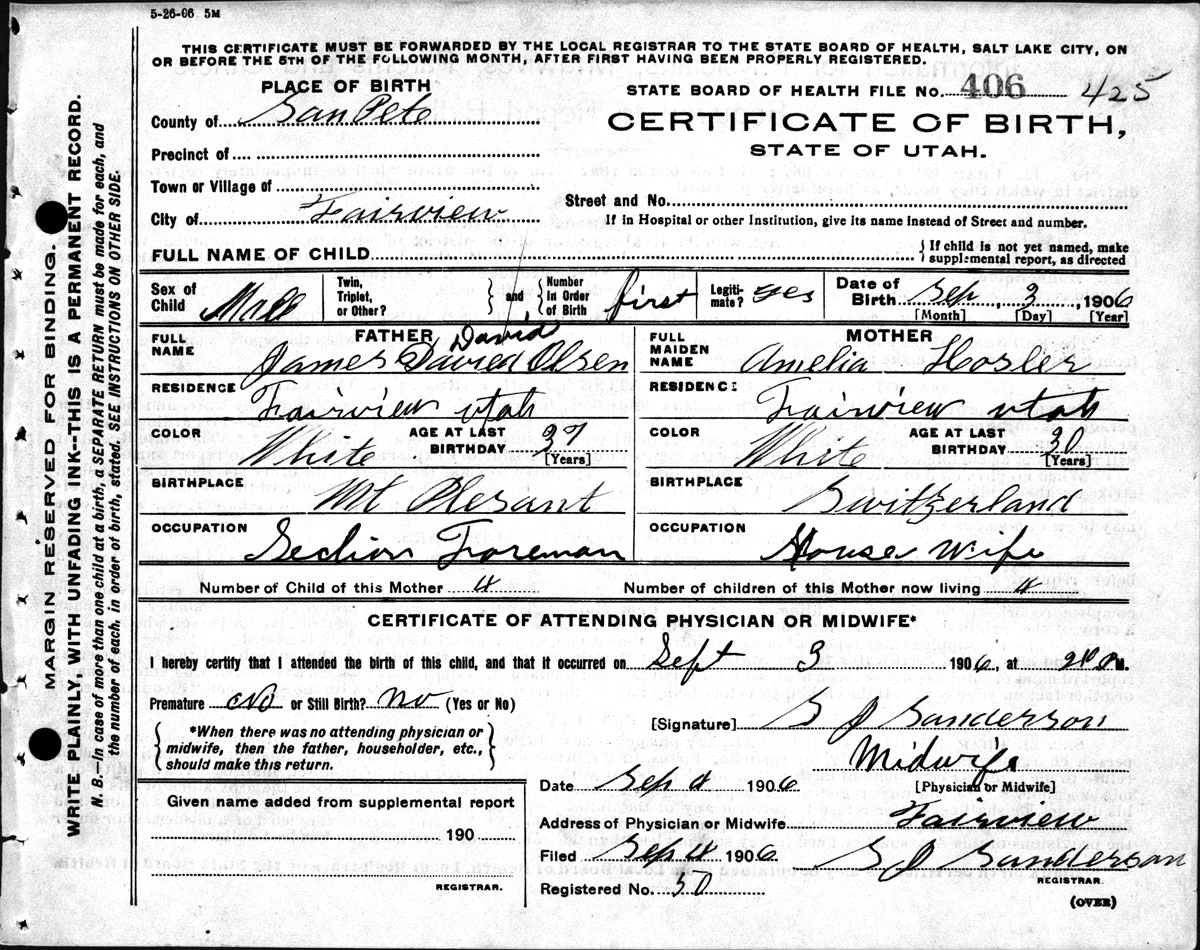 5-26-06 5M
THIS CERTIFICATE MUST BE FORWARDED BY THE LOCAL REGISTRAR TO THE STATE BOARD OF HEALTH, SALT LAKE CITY, ON
OR BEFORE THE 5TH OF THE FOLLOWING MONTH, AFTER FIRST HAVING BEEN PROPERLY REGISTERED.
PLACE OF BIRTH
STATE BOARD OF HEALTH FILE No. 406 425
County of SanPete
CERTIFICATE OF BIRTH,
STATE OF UTAH.
Precinct of
Town or Village of
Street and No.
City of Fairview
If in Hospital or other Institution, give its name instead of Street and number.
FULL NAME OF CHILD { If child is not yet named, make supplemental report, as directed
Sex of Child Male Twin, Triplet, or Other? } and { Number In Order of Birth first Legiti-mate? yes Date of Birth Sep, 3, 1906
[Month] [Day] [Year]
FATHER
MOTHER
David
FULL NAME James David Olsen
FULL MAIDEN NAME Amelia Hosler
RESIDENCE Fairview utah
RESIDENCE Fairview utah
COLOR White AGE AT LAST BIRTHDAY 37 [Years]
COLOR White AGE AT LAST BIRTHDAY 30 [Years]
BIRTHPLACE Mt Plesant
BIRTHPLACE Switzerland
OCCUPATION Section Foreman
OCCUPATION House Wife
Number of Child of this Mother 4 Number of children of this Mother now living 4
CERTIFICATE OF ATTENDING PHYSICIAN OR MIDWIFE*
I hereby certify that I attended the birth of this child, and that it occurred on Sept 3 1906, at M.
Premature no or Still Birth? no (Yes or No)
[Signature] S J Sanderson
{ *When there was no attending physician or midwife, then the father, householder, etc., should make this return. }
Midwife
[Physician or Midwife]
Date Sep 4 1906
Given name added from supplemental report
Address of Physician or Midwife Fairview
190
Filed Sep 4 1906 S J Sanderson
REGISTRAR.
REGISTRAR.
Registered No. 50
(OVER)
MARGIN RESERVED FOR BINDING.
WRITE PLAINLY, WITH UNFADING INK--THIS IS A PERMANENT RECORD.
N. B.—In case of more than one child at a birth, a SEPARATE RETURN must be made for each, and
the number of each, in order of birth, stated. SEE INSTRUCTIONS ON OTHER SIDE.